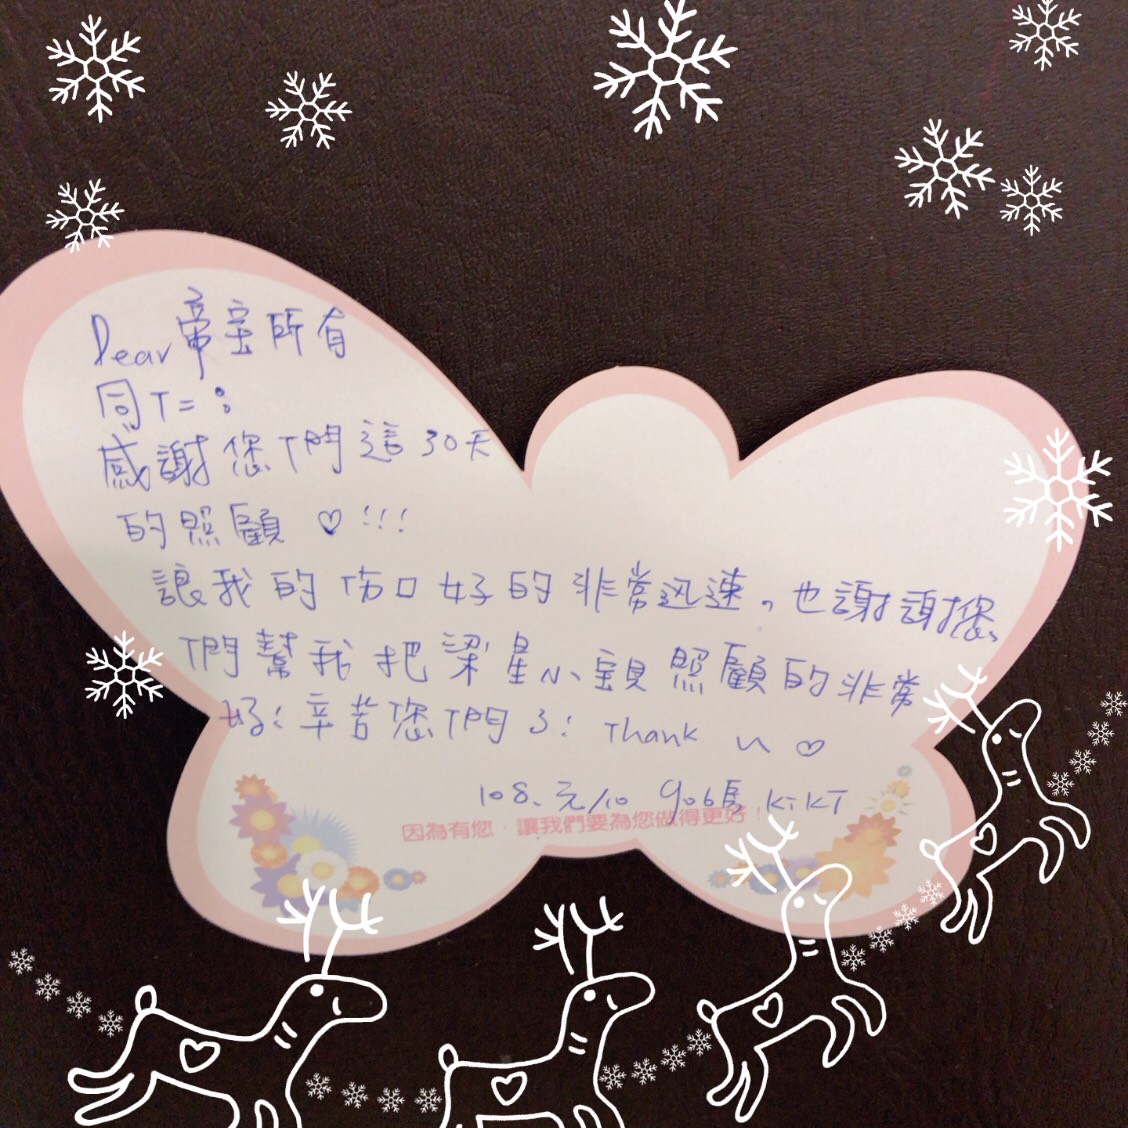 Dear 帝宝所有
同仁：
感謝您們這30天
的照顧 ♡!!!
讓我的伤口好的非常迅速，也謝謝您
們幫我把梁星小宝貝照顧的非常
好！辛苦您們了！Thank ～ ♡
108.元/10 906房 KiKi
因為有您，讓我們要為您做得更好！